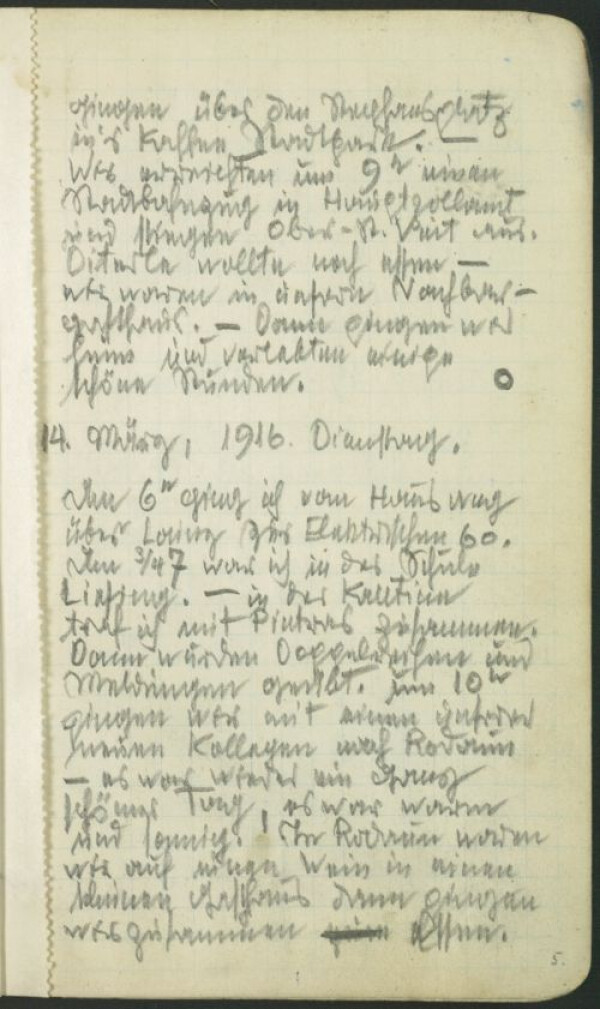 gingen über den Stephansplatz
in's Kaffee Stadtpark. —
Wir erreichten um 9ʰ einen
Stadtbahnzug in Hauptzollamt
und stiegen Ober-St. Veit aus.
wollte noch essen —
wir waren in unsern Nachbar-
gasthaus. — Dann gingen wir
heim und verlebten einige
schöne Stunden.
14. März, 1916. Dienstag.
Um 6ʰ ging ich vom Haus weg
über Lainz zur Elektrischen 60.
Um ¾7 war ich in der Schule
Liesing. — in der Kantine
traf ich mit zusammen.
Dann wurden Doppelreihen und
Meldungen geübt. um 10ʰ
gingen wir mit einen unserer
neuen Kollegen nach Rodaun
— es war wieder ein ganz
schöner Tag, es war warm
und sonnig. In Rodaun waren
wir auf einen Wein in einen
kleinen Gasthaus dann gingen
wir zusammen Essen.
5.